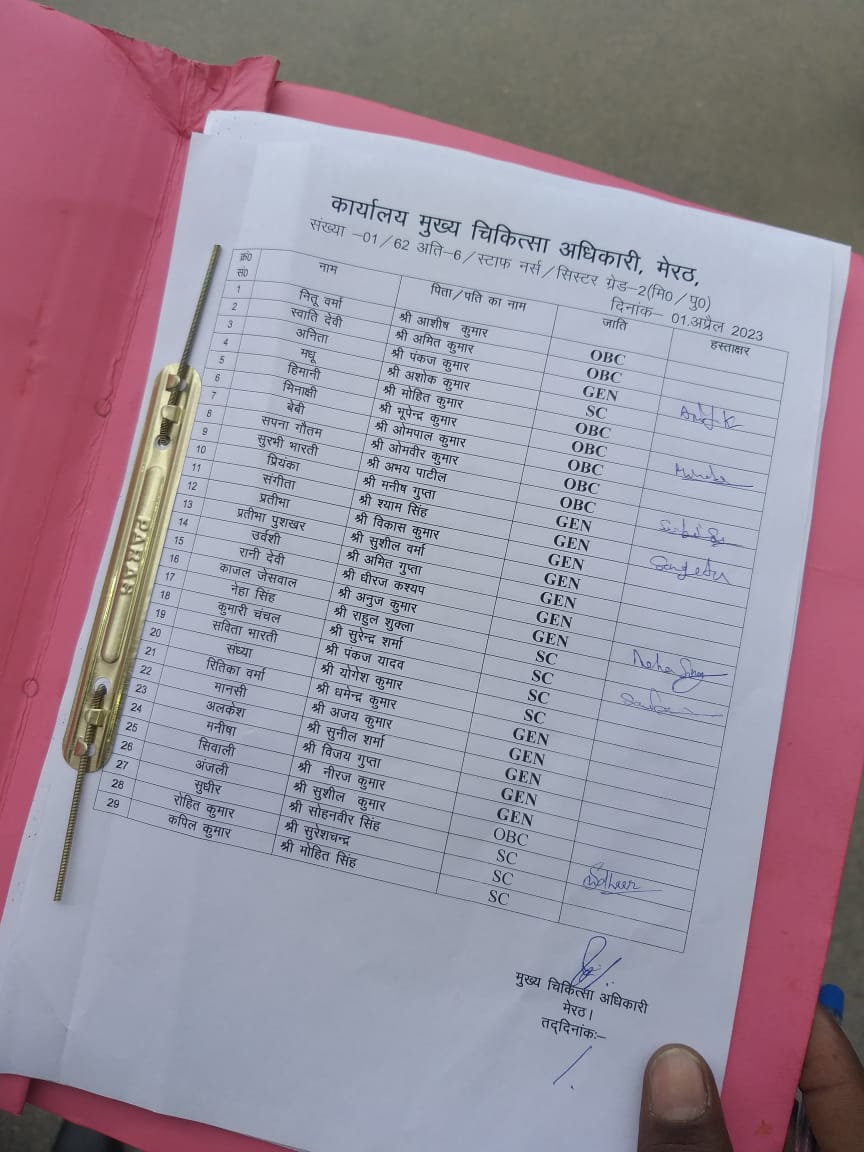 कार्यालय मुख्य चिकित्सा अधिकारी, मेरठ,
संख्या –01/62 अति–6/स्टाफ नर्स/सिस्टर ग्रेड–2(मि0/पु0)
दिनांक– 01.अप्रैल 2023
क्र0 सं0 नाम पिता/पति का नाम जाति हस्ताक्षर
1 नितू वर्मा श्री आशीष कुमार OBC
2 स्वाति देवी श्री अमित कुमार OBC
3 अनिता श्री पंकज कुमार GEN
4 मधू श्री अशोक कुमार SC
5 हिमानी श्री मोहित कुमार OBC
6 मिनाक्षी श्री भूपेन्द्र कुमार OBC
7 बेबी श्री ओमपाल कुमार OBC
8 सपना गौतम श्री ओमवीर कुमार OBC
9 सुरभी भारती श्री अभय पाटील OBC
10 प्रियंका श्री मनीष गुप्ता GEN
11 संगीता श्री श्याम सिंह GEN
12 प्रतीमा श्री विकास कुमार GEN
13 प्रतीमा पुशखर श्री सुशील वर्मा GEN
14 उर्वशी श्री अमित गुप्ता GEN
15 रानी देवी श्री धीरज कश्यप GEN
16 काजल जेसवाल श्री अनुज कुमार GEN
17 नेहा सिंह श्री राहुल शुक्ला SC Neha Singh
18 कुमारी चंचल श्री सुरेन्द्र शर्मा SC
19 सविता भारती श्री पंकज यादव SC
20 संध्या श्री योगेश कुमार SC
21 रितिका वर्मा श्री धमेन्द्र कुमार GEN
22 मानसी श्री अजय कुमार GEN
23 अलकेश श्री सुनील शर्मा GEN
24 मनीषा श्री विजय गुप्ता GEN
25 सिवाली श्री नीरज कुमार GEN
26 अंजली श्री सुशील कुमार OBC
27 सुधीर श्री सोहनवीर सिंह SC Sudheer
28 रोहित कुमार श्री सुरेशचन्द्र SC
29 कपिल कुमार श्री मोहित सिंह SC
मुख्य चिकित्सा अधिकारी
मेरठ।
तद्दिनांकः–
PARAS